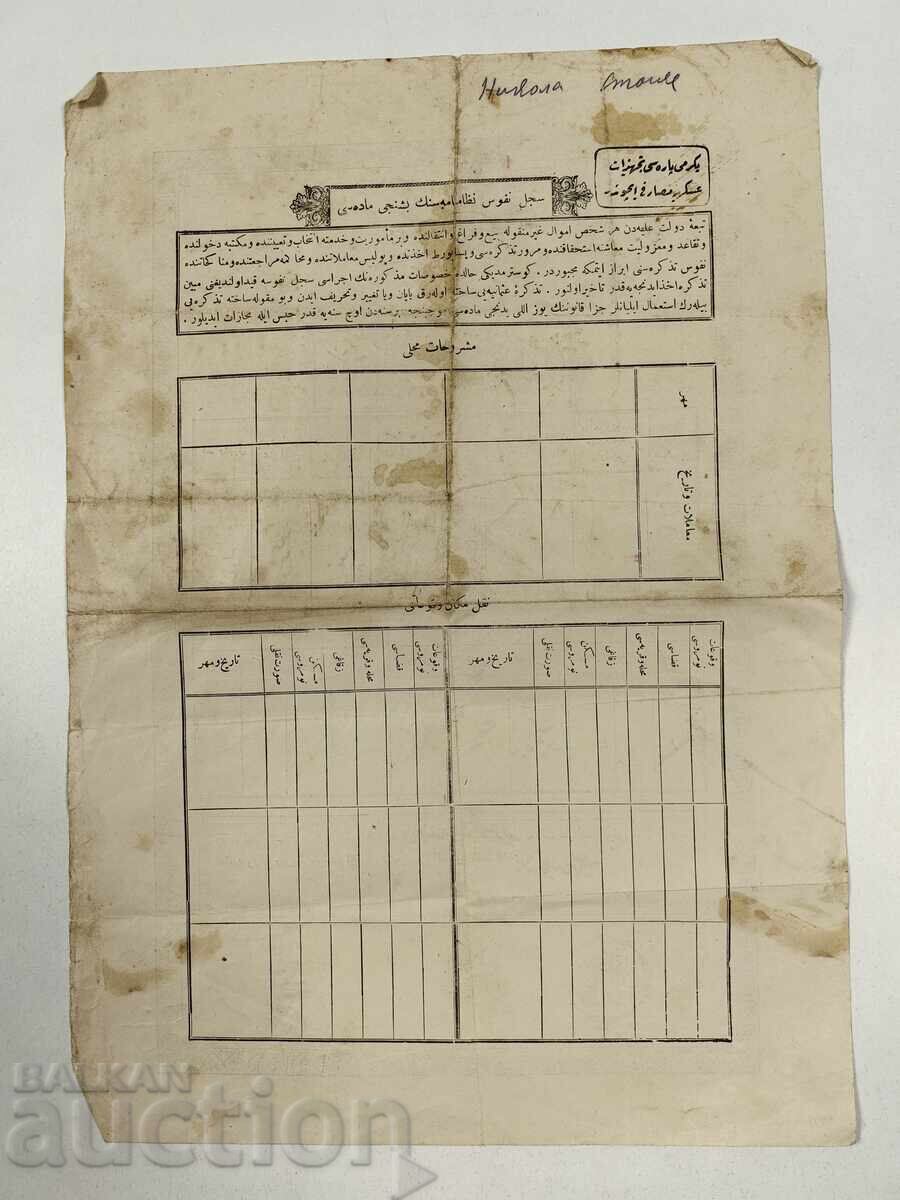 Никола
یكرمی پاره‌سی تجهیزات
عسكریه مصارفی ایچوندر
سجل نفوس نظامنامه‌سنك بشنجی ماده‌سی
تبعهٔ دولت علیه‌دن هر شخص اموال غیر منقوله بیع و فراغ و انتقالنده و بر مأموریت و خدمته انتخاب و تعییننده و مكتبه دخولنده
و تقاعد و معزولیت معاشنه استحقاقنده و مرور تذكره‌سی و پساپورط اخذنده و پولیس معاملاتنده و محاكمه مراجعتنده و مناكحاتنده
نفوس تذكره‌سنی ابراز ایتمكه مجبوردر. كوسترمدیكی حالده خصوصات مذكوره‌نك اجراسی سجل نفوسه قید اولندیغنی مبین
تذكره اخذ ایدنجه‌یه قدر تأخیر اولنور. تذكرهٔ عثمانیه‌یی ساخته اوله‌رق یاپان ویا تغییر و تحریف ایدن و بو مقوله ساخته تذكره‌یی
بیله‌رك استعمال ایلیانلر جزا قانوننك یوز اللی یدنجی ماده‌سی موجبنجه بر سنه‌دن اوچ سنه‌یه قدر حبس ایله مجازات ایدیلور.
مشروحات محلی
مهر
معاملات و تاریخ
نقل مكان وقوعاتی
وقوعات نومروسی
قضاسی
محله و قریه‌سی
زقاغی
مسكن نومروسی
صورت نقلی
تاریخ و مهر
وقوعات نومروسی
قضاسی
محله و قریه‌سی
زقاغی
مسكن نومروسی
صورت نقلی
تاریخ و مهر
BALKAN
auction